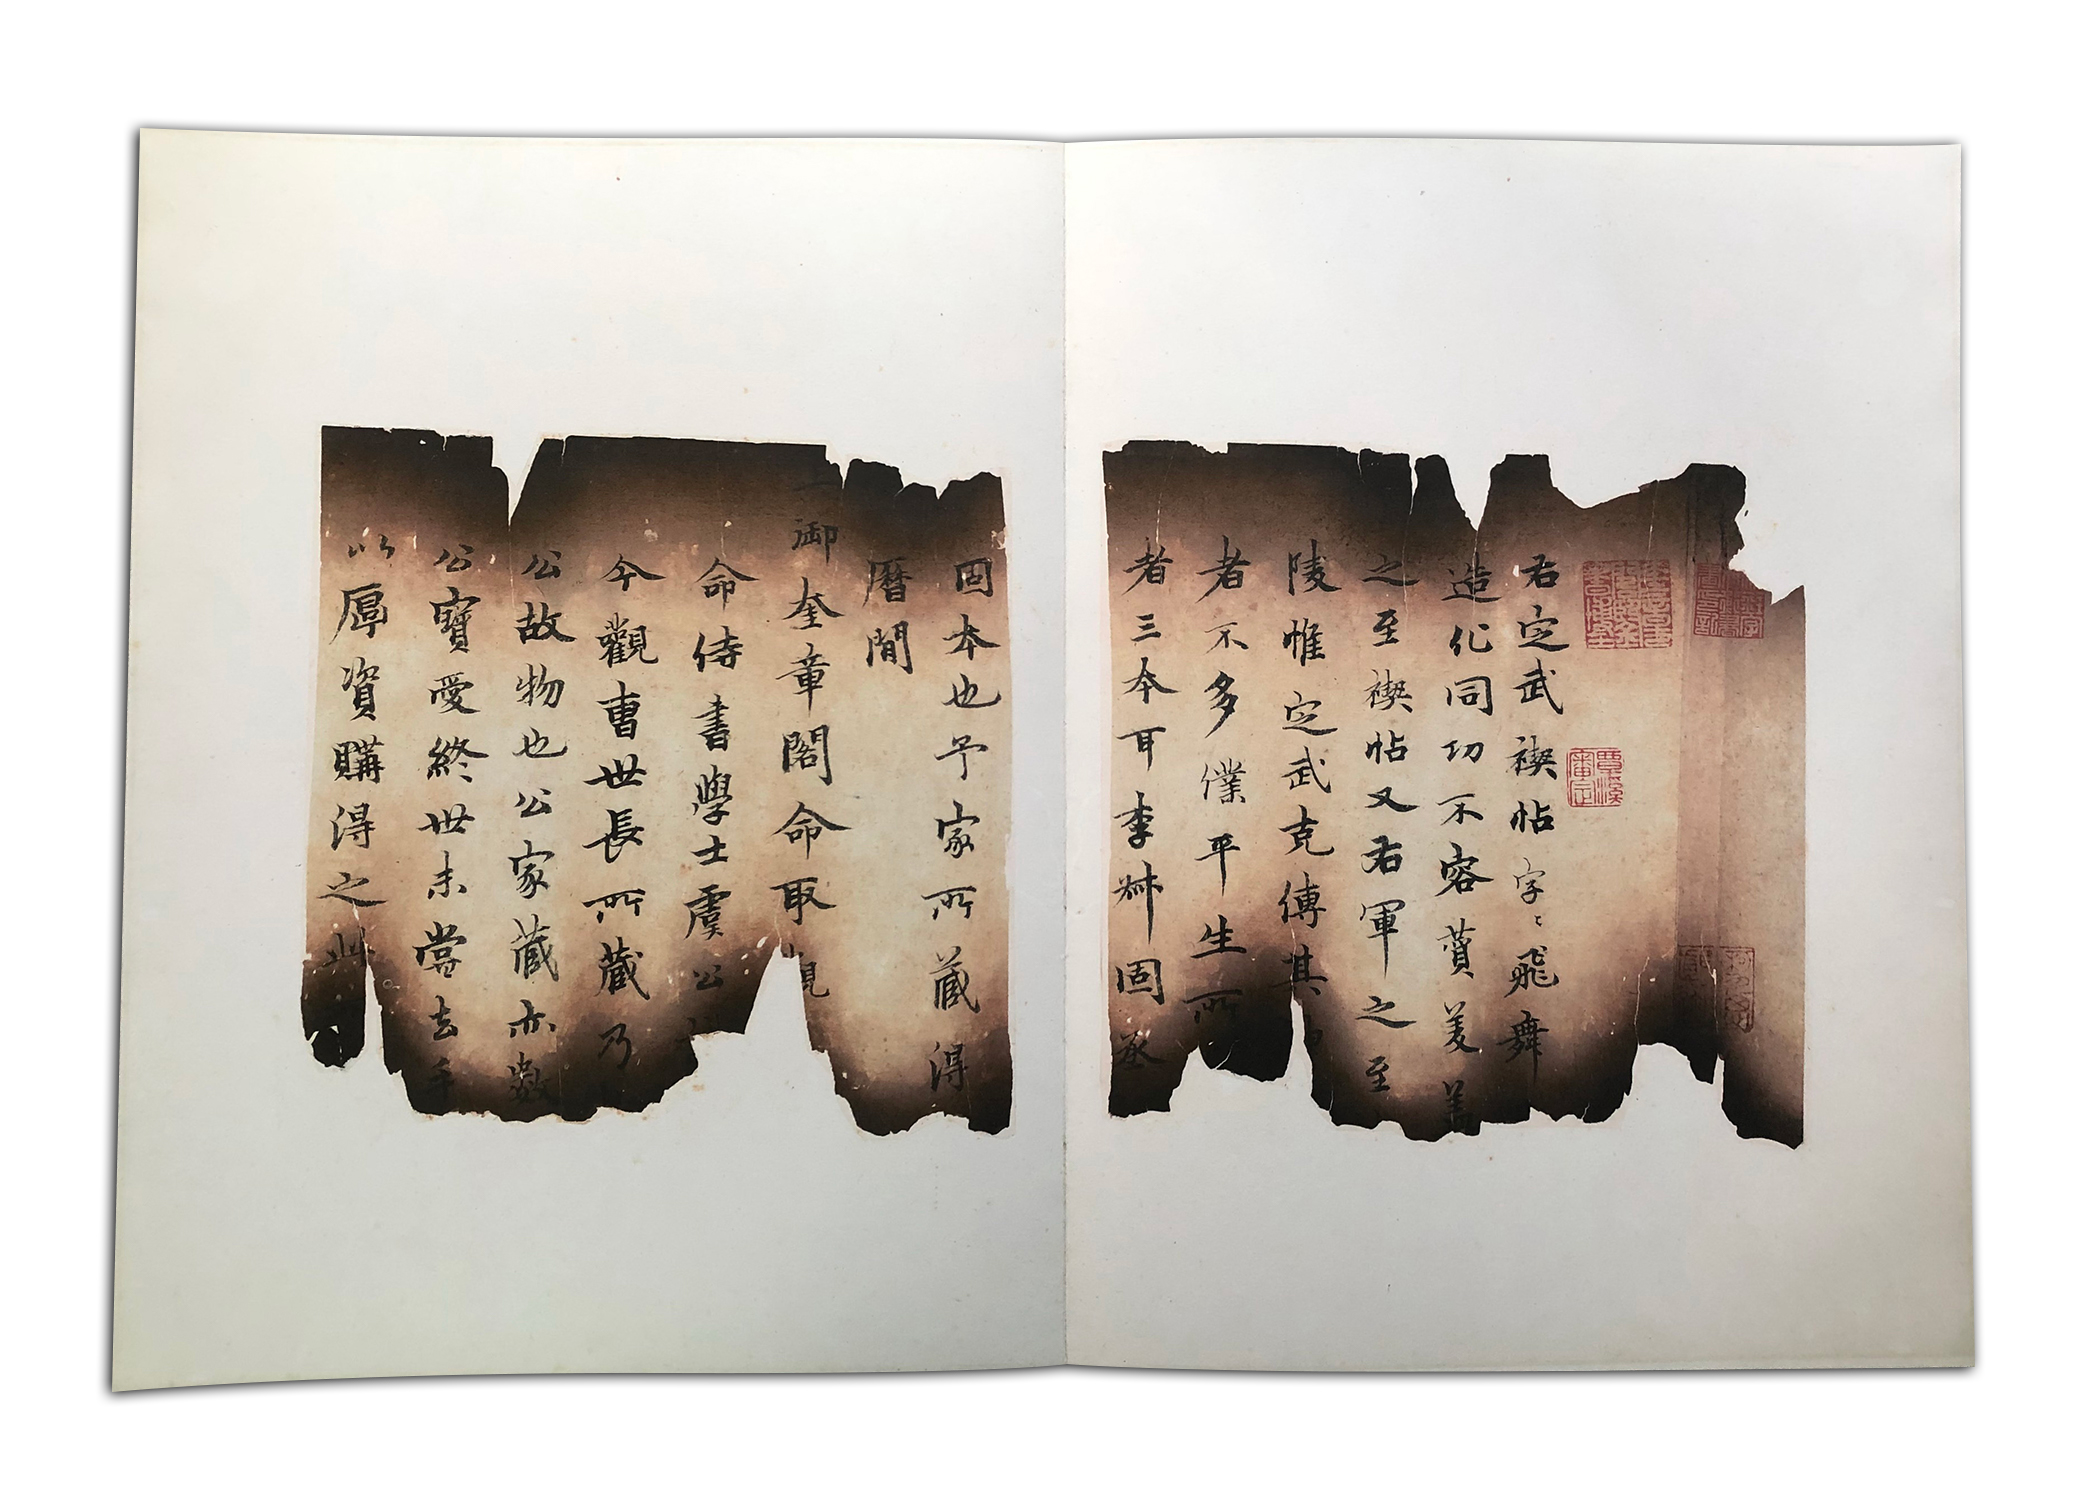 右定武禊帖字〻飛舞
造化同功不容贊美美
之至禊帖又右軍之至
陵惟定武克傳其
者不多僕平生所
者三本耳李叔固丞
固本也予家所藏得
曆間
御奎章閣命取觀
命侍書學士虞公
今觀曹世長所藏乃
公故物也公家藏亦數
公寶愛終世未嘗去手
以厚資購得之此